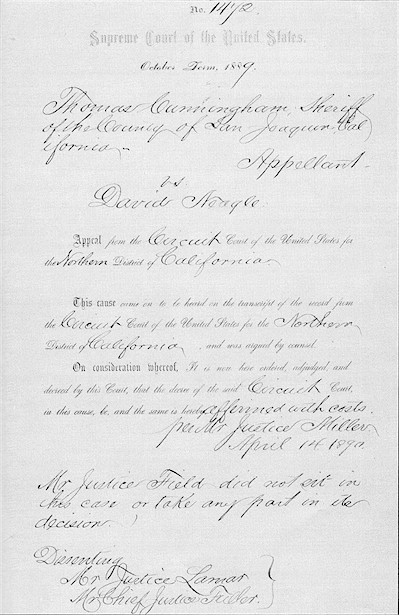 No. 1472.
Supreme Court of the United States.
October Term, 1889.
Thomas Cunningham, Sheriff
of the County of San Joaquin Cal
ifornia.
Appellant.
vs.
David Neagle.
Appeal from the Circuit Court of the United States for
the Northern District of California.
This cause came on to be heard on the transcript of the record from
the Circuit Court of the United States for the Northern
District of California, and was argued by counsel.
On consideration whereof, It is now here ordered, adjudged, and
decreed by this Court, that the decree of the said Circuit Court,
in this cause, be, and the same is hereby affirmed with costs.
per Mr. Justice Miller,
April 14. 1890.
Mr. Justice Field did not sit in
this case or take any part in its
decision.
Dissenting,
Mr. Justice Lamar
Mr. Chief Justice Fuller.